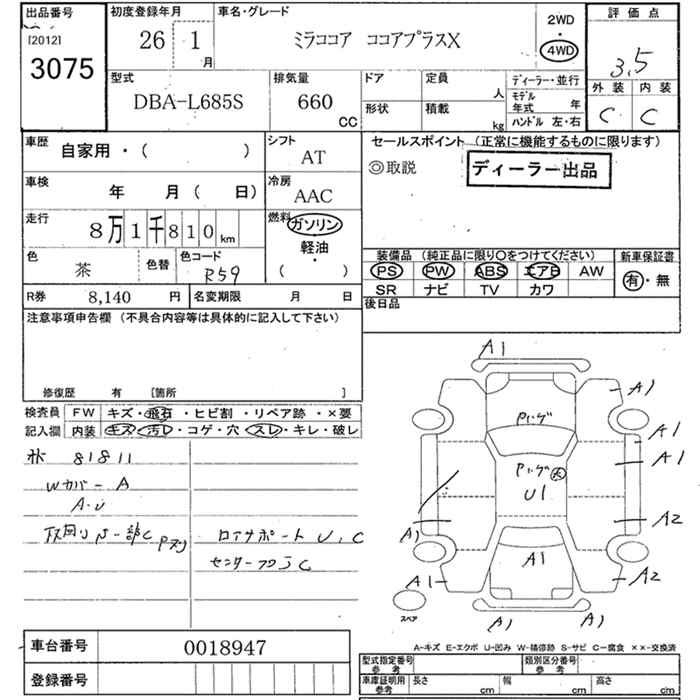 出品番号
[2012]
3075
初度登録年月
26 1
月
車名・グレード
ミラココア ココアプラスX
2WD
・
4WD
評価点
3.5
外装 内装
C C
型式
DBA-L685S
排気量
660
CC
ドア
定員
人
形状
積載
kg
ディーラー・並行
モデル
年式 年
ハンドル 左・右
車歴
自家用・( )
シフト
AT
セールスポイント (正常に機能するものに限ります)
◎取説
ディーラー出品
車検
年 月( 日)
冷房
AAC
走行
8万1千810km
燃料
ガソリン
軽油
・
( )
色
茶
色替
色コード
R59
装備品 (純正品に限り〇をつけてください)
PS PW ABS エアB AW
SR ナビ TV カワ
新車保証書
有・無
R券 8,140 円
名変期限 月 日
後日品
注意事項申告欄 (不具合内容等は具体的に記入して下さい)
修復歴 有 [箇所 ]
検査員
記入欄
FW キズ・飛石・ヒビ割・リペア跡・×要
内装 キズ・汚レ・コゲ・穴・スレ・キレ・破レ
81811
Wカバー A
A・U
ロアサポート U、C
C
A1
A1
A1
A1
U1
A1
A2
A1
A1
A2
A1
A1
スペア
A-キズ E-エクボ U-凹み W-補修跡 S-サビ C-腐食 ××-交換済
車台番号
0018947
登録番号
型式指定番号
参考
類別区分番号
参考
車庫証明用
参考
長さ cm
幅 cm
高さ cm